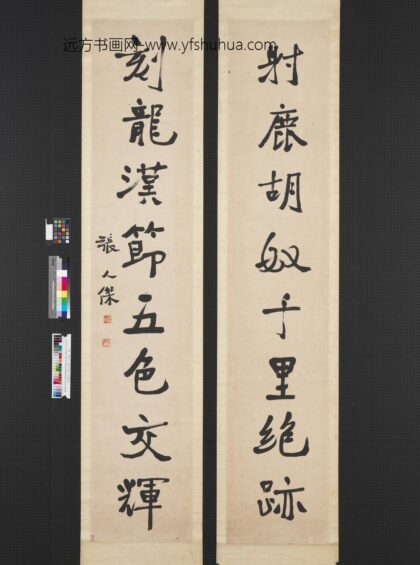 远方书画网-www.yfshuhua.com
射鹿胡千里絶跡
刻龍漢節五色交輝
張人傑